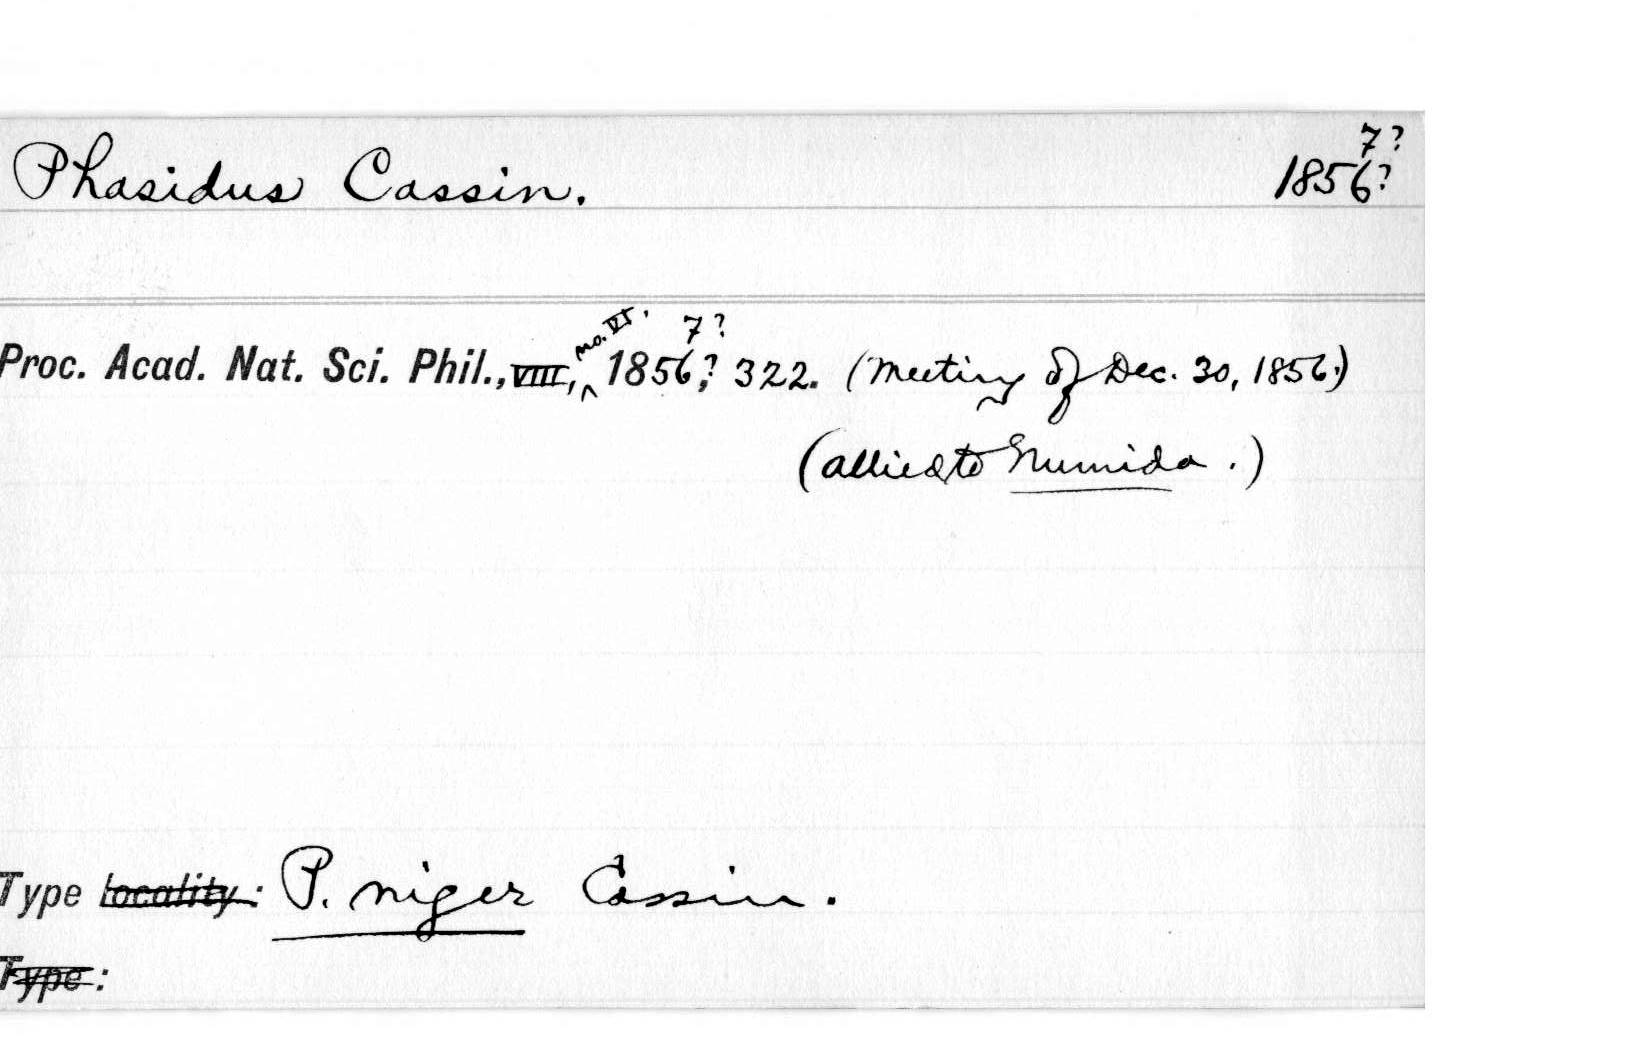 Phasidus Cassin. 1856? 7?
Proc. Acad. Nat. Sci. Phil., VIII, no. VI. 1856?, 7? 322. (Meeting of Dec. 30, 1856.)
(allied to Numida.)
Type locality: P. niger Cassin.
Type: